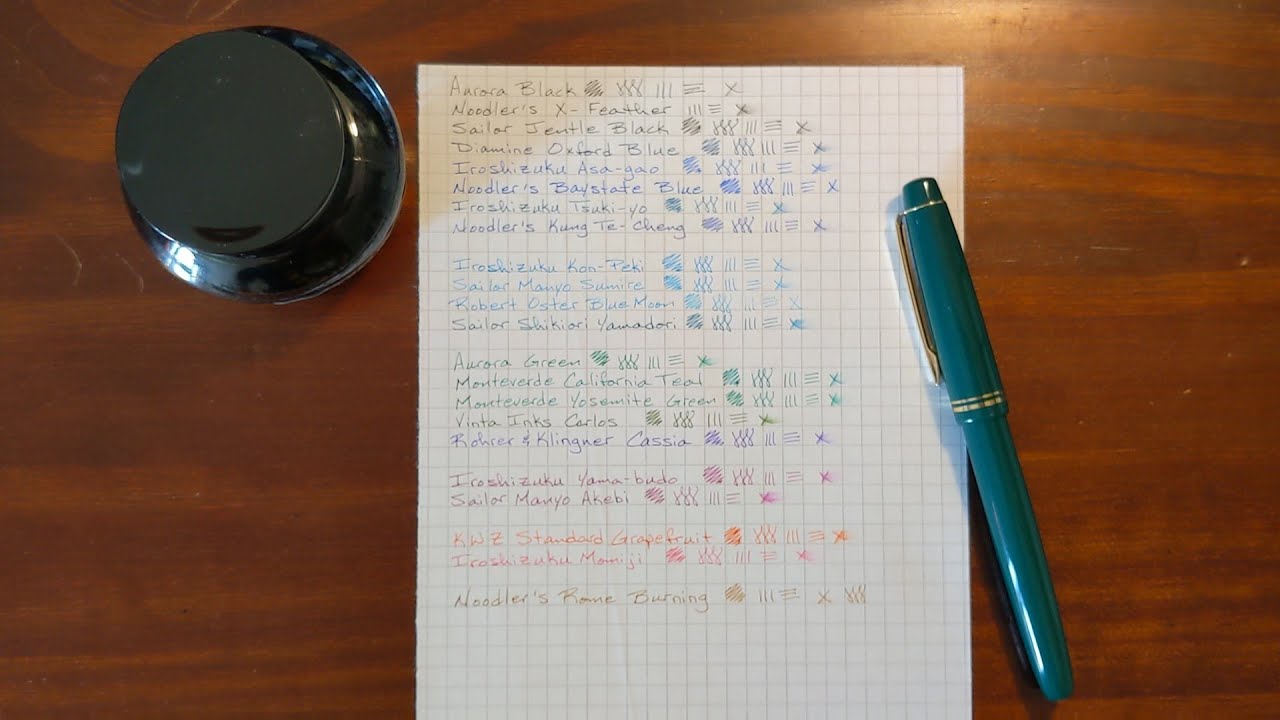 Aurora Black
Noodler's X-Feather
Sailor Jentle Black
Diamine Oxford Blue
Iroshizuku Asa-gao
Noodler's Baystate Blue
Iroshizuku Tsuki-yo
Noodler's Kung Te-Cheng
Iroshizuku Kon-Peki
Sailor Manyo Sumire
Robert Oster Blue Moon
Sailor Shikiori Yamadori
Aurora Green
Monteverde California Teal
Monteverde Yosemite Green
Vinta Inks Carlos
Rohrer & Klingner Cassia
Iroshizuku Yama-budo
Sailor Manyo Akebi
KWZ Standard Grapefruit
Iroshizuku Momiji
Noodler's Rome Burning